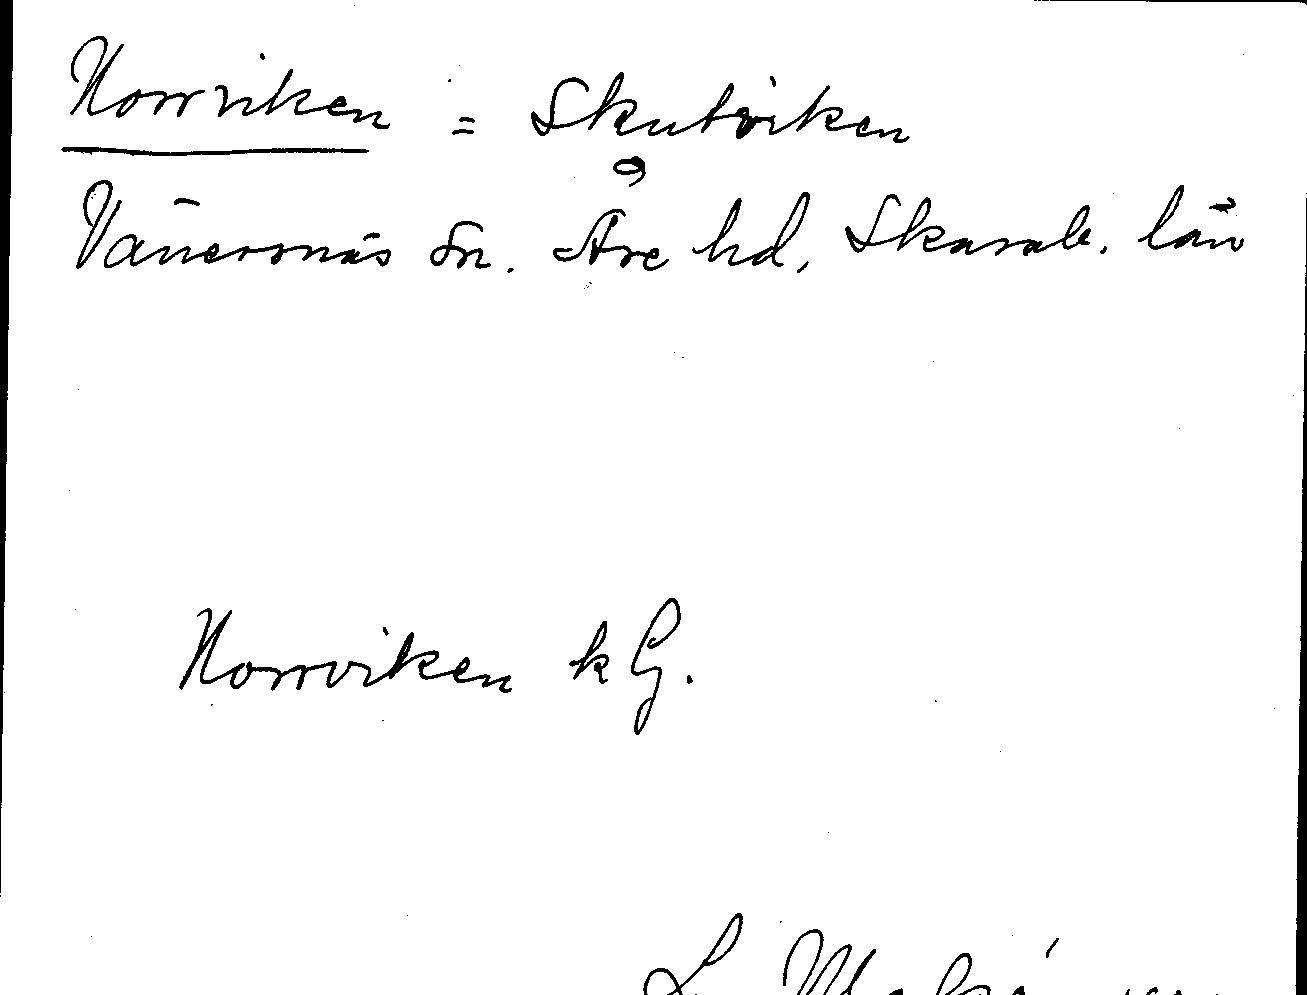 Norrviken = Skutviken
Vänersnäs sn. Åse hd, Skarab. län
Norrviken kG.